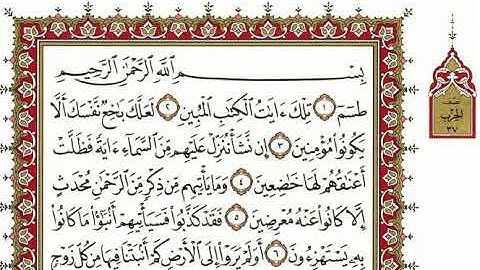 بِسْمِ ٱللَّهِ ٱلرَّحْمَٰنِ ٱلرَّحِيمِ
طسٓمٓ ١ تِلْكَ ءَايَٰتُ ٱلْكِتَٰبِ ٱلْمُبِينِ ٢ لَعَلَّكَ بَٰخِعٌ نَّفْسَكَ أَلَّا
يَكُونُوا۟ مُؤْمِنِينَ ٣ إِن نَّشَأْ نُنَزِّلْ عَلَيْهِم مِّنَ ٱلسَّمَآءِ ءَايَةً فَظَلَّتْ
أَعْنَٰقُهُمْ لَهَا خَٰضِعِينَ ٤ وَمَا يَأْتِيهِم مِّن ذِكْرٍ مِّنَ ٱلرَّحْمَٰنِ مُحْدَثٍ
إِلَّا كَانُوا۟ عَنْهُ مُعْرِضِينَ ٥ فَقَدْ كَذَّبُوا۟ فَسَيَأْتِيهِمْ أَنۢبَٰٓؤُا۟ مَا كَانُوا۟
بِهِۦ يَسْتَهْزِءُونَ ٦ أَوَلَمْ يَرَوْا۟ إِلَى ٱلْأَرْضِ كَمْ أَنۢبَتْنَا فِيهَا مِن كُلِّ زَوْجٍ
نصف
الحزب
٣٧